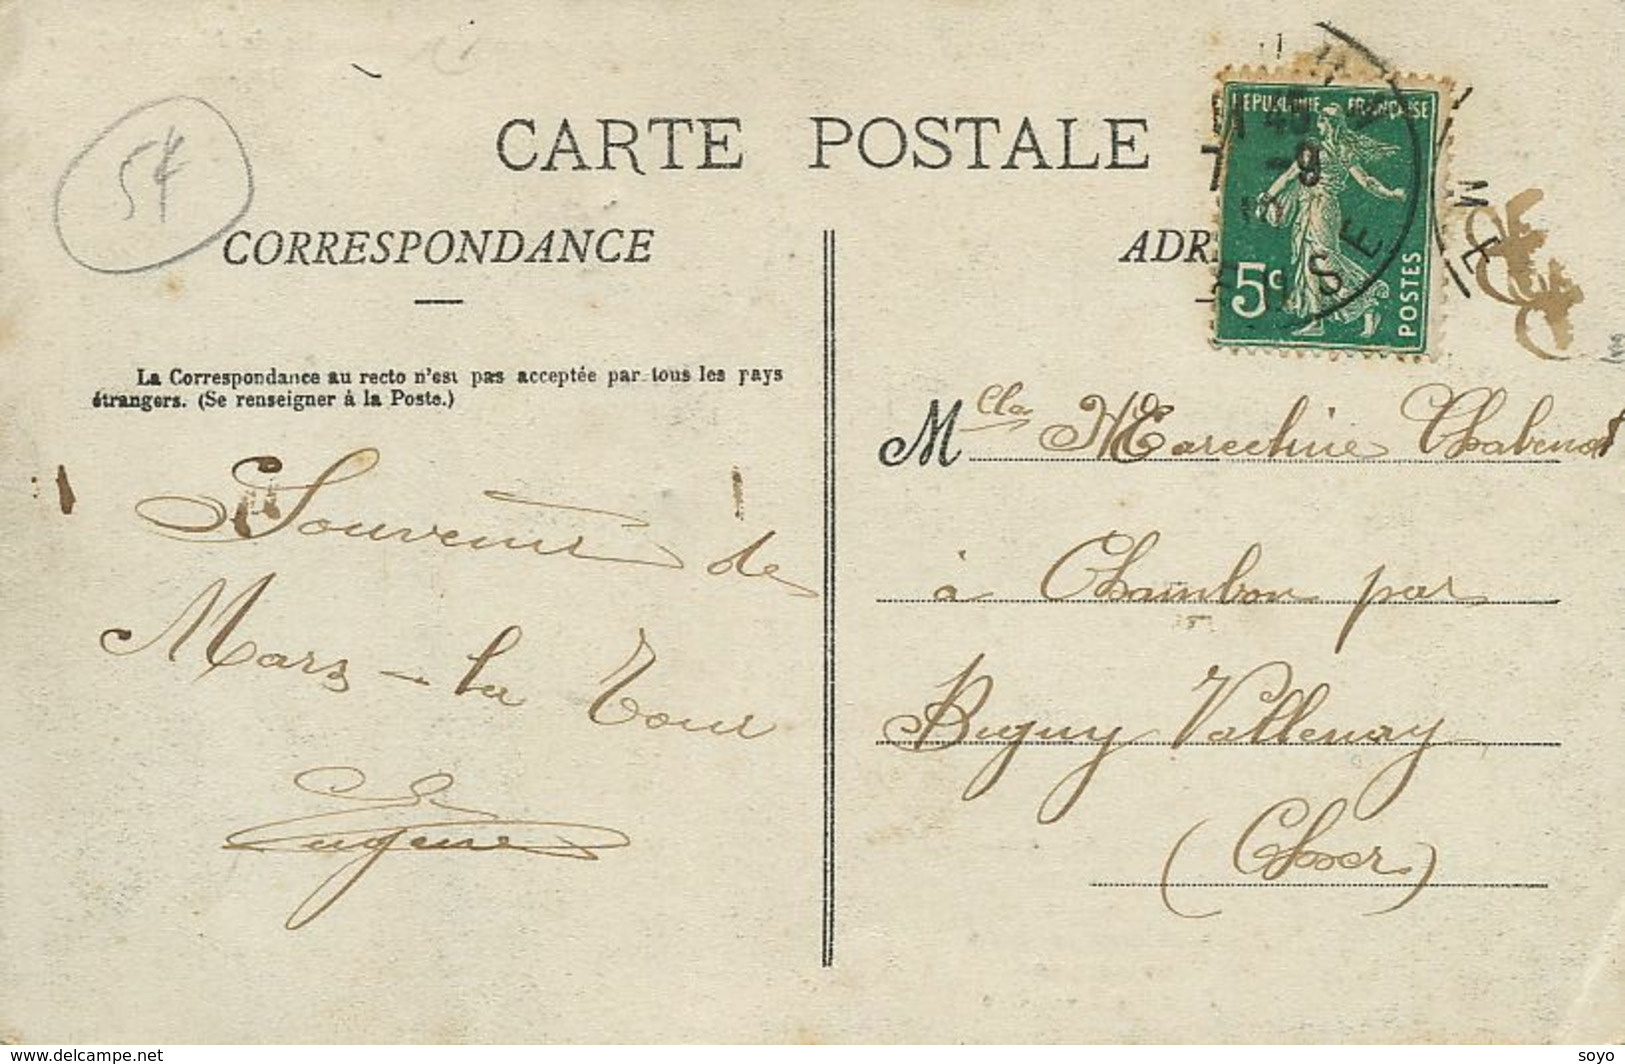 54
CARTE POSTALE
CORRESPONDANCE
La Correspondance au recto n'est pas acceptée par tous les pays
étrangers. (Se renseigner à la Poste.)
Souvenir de
Mars-la Tour
Eugene
REPUBLIQUE FRANÇAISE
5c
POSTES
ADR
M Chabenat
à Chambon par
Bigny Vallenay
(Cher)
www.delcampe.net
soyo